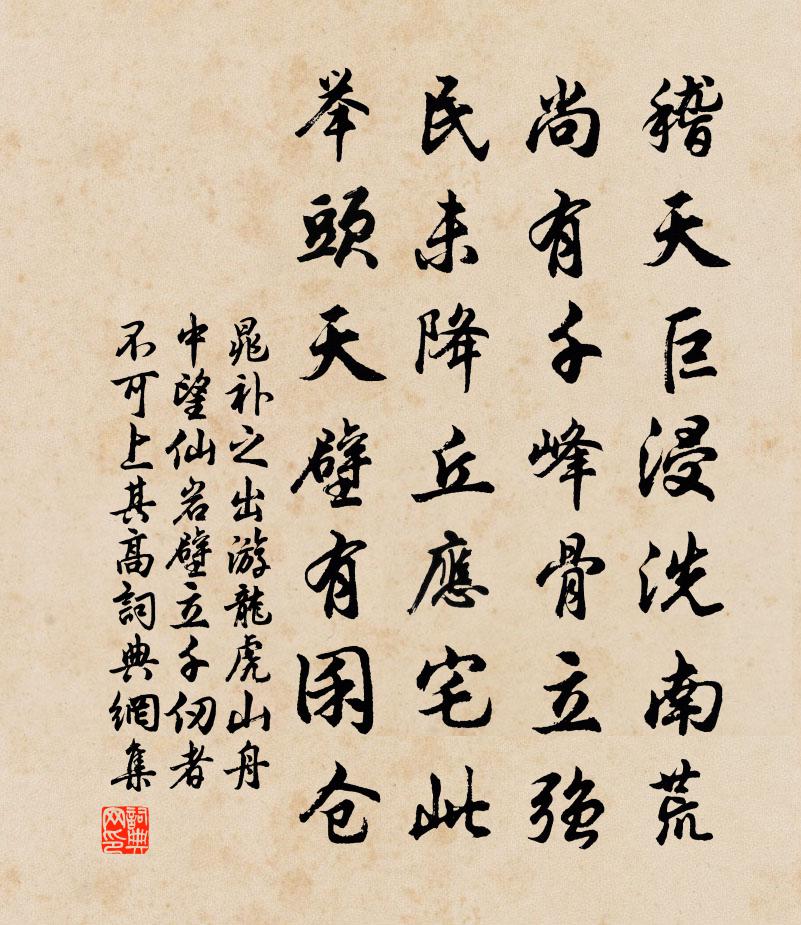 稽天巨浸洗南荒
尚有千峰骨立強
民未降丘應宅此
举頭天壁有囷仓
晁补之出游龍虎山舟
中望仙岩壁立千仞者
不可上其高詞典網集
詞典网印